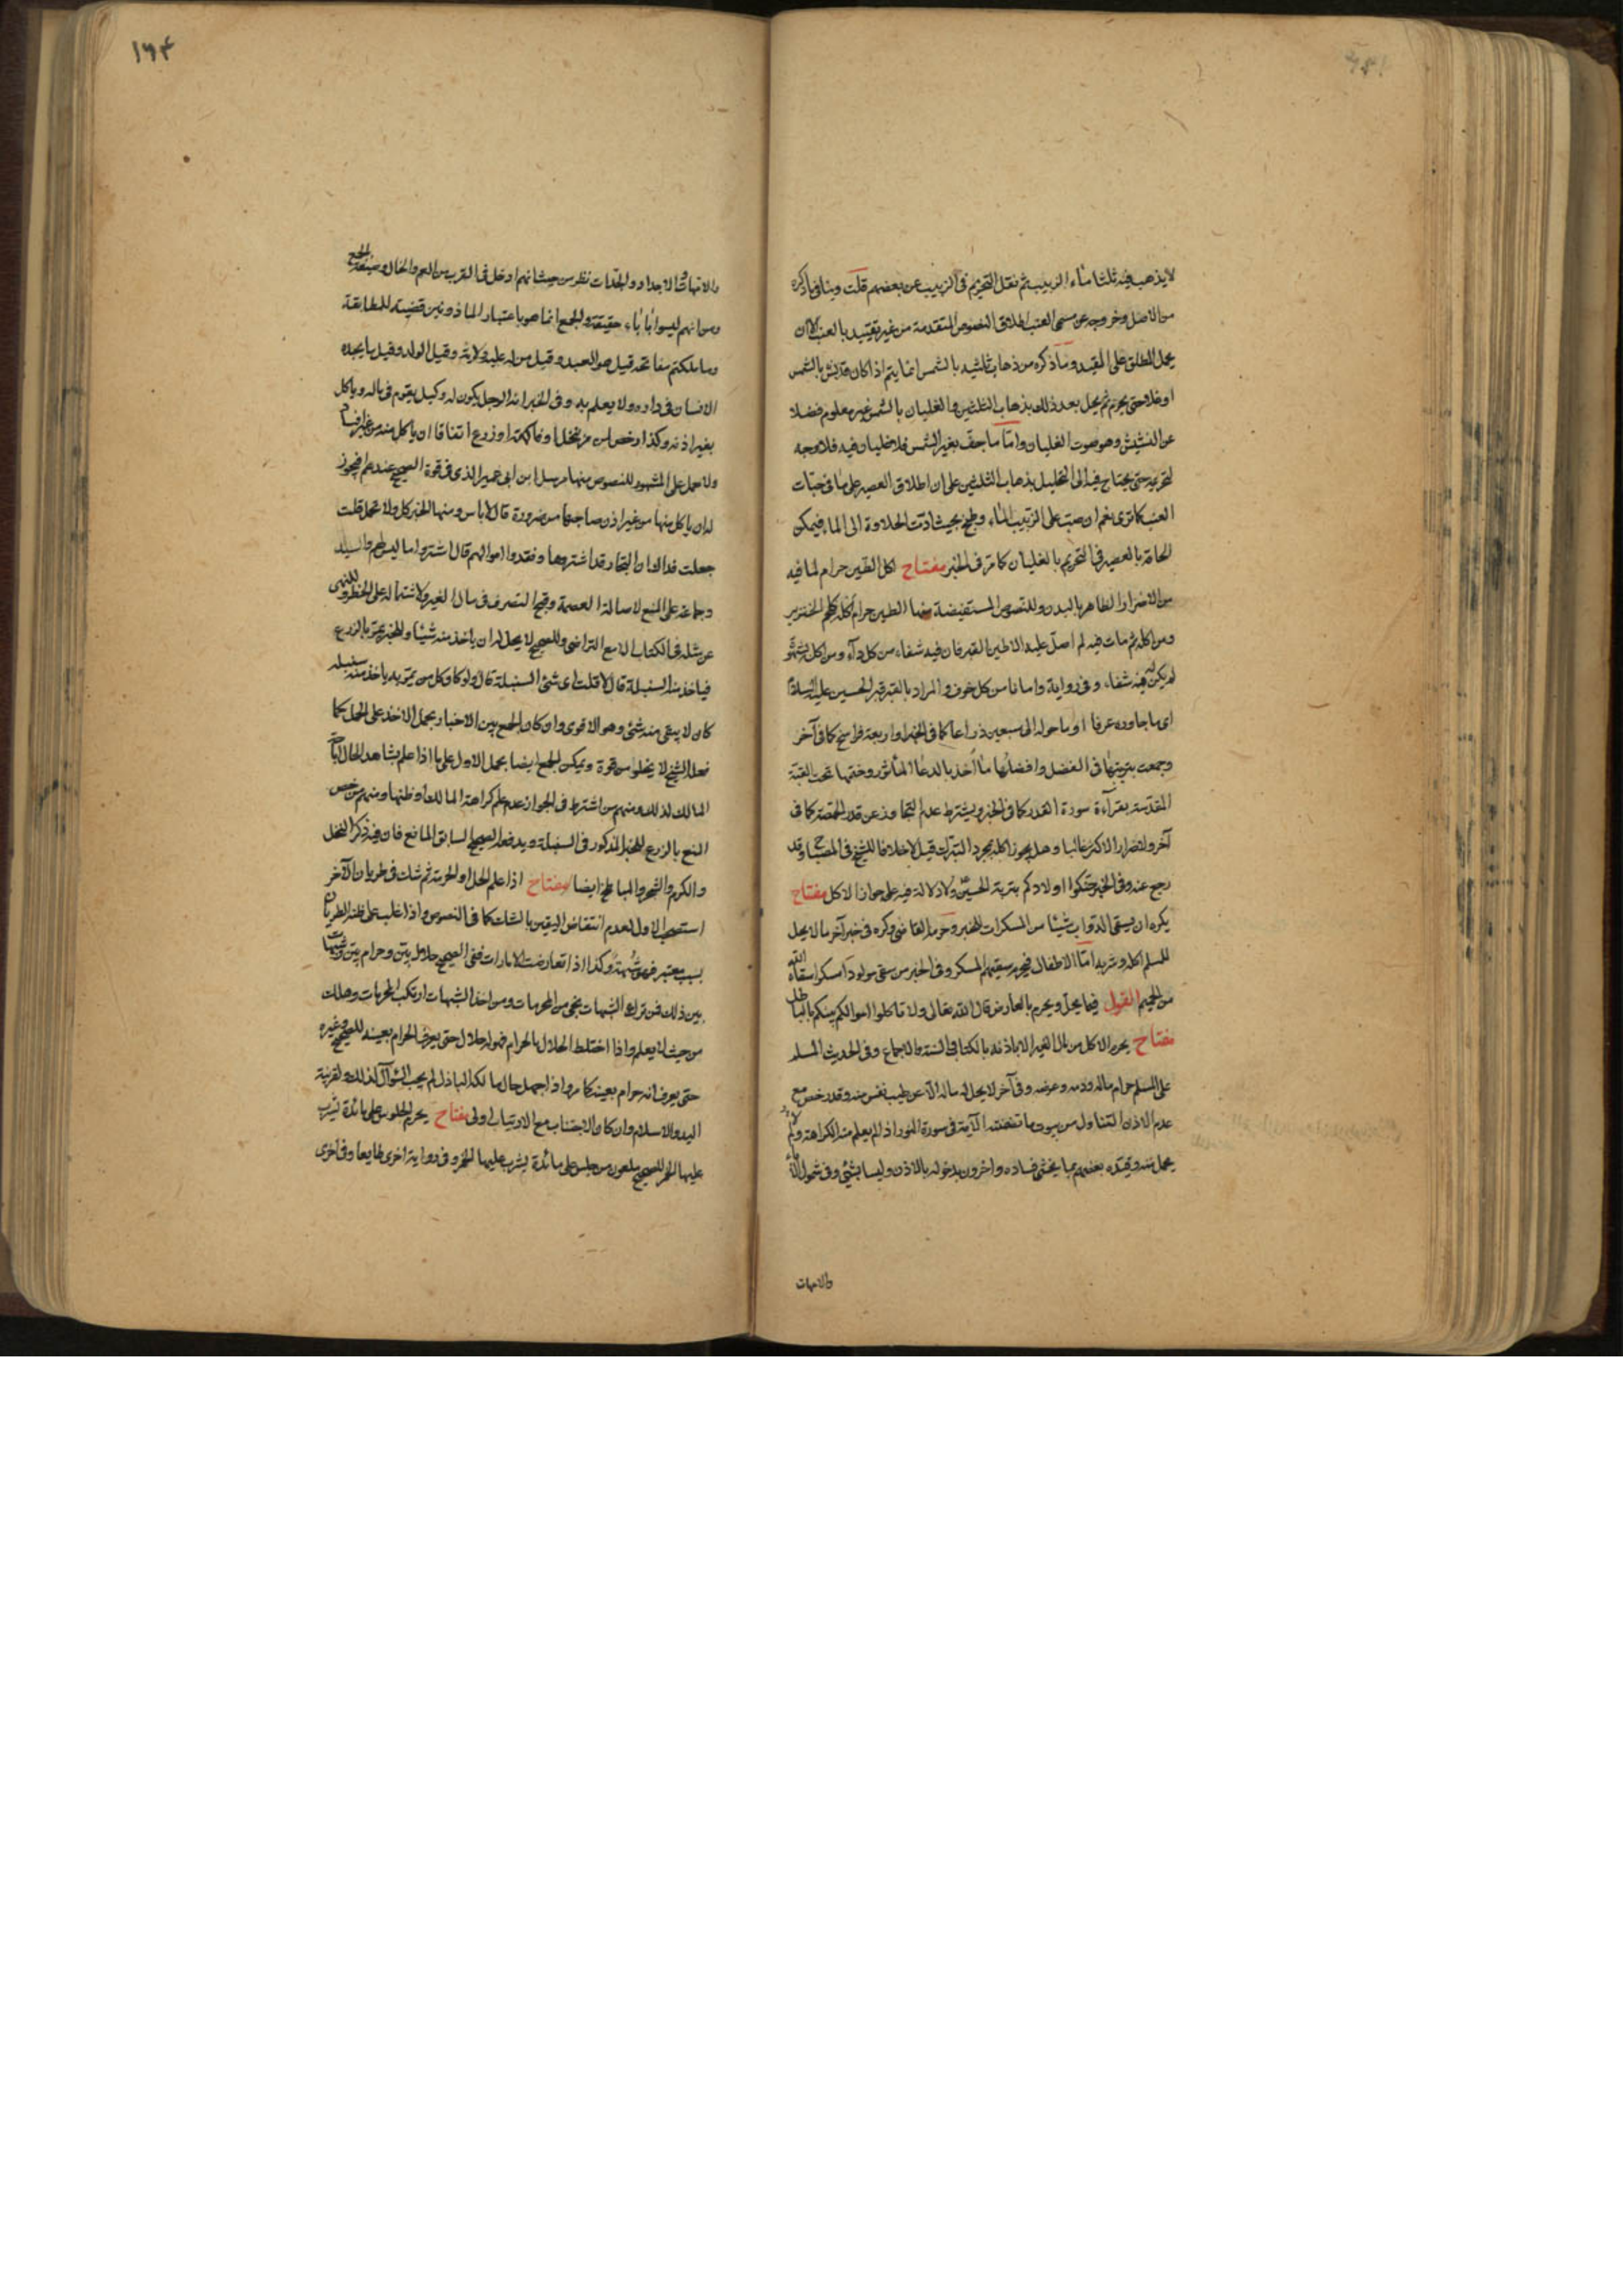 لا يذهب فيه ثلثا ماء الزبيب ثم نقل التحريم في الزبيب عن بعضهم قلت وينافي ما ذكره
من الاصل وخروجه عن مسمى العنب اطلاق النصوص المتقدمة من غير تقييد بالعنب الا ان
يحمل المطلق على المقيد وما ذكره من ذهاب ثلثيه بالشمس انما يتم اذا كان قد نش بالشمس
او غلا حتى يحرم ثم يحل بعد ذلك بذهاب الثلثين والغليان بالشمس غير معلوم فضلا
عن النشيش وهو صوت الغليان واما ما جف بغير الشمس فلا غليان فيه فلا وجه
لتحريمه حتى يحتاج فيه الى التحليل بذهاب الثلثين على ان اطلاق العصير على ما في حبات
العنب كما ترى نعم ان صب على الزبيب الماء وطبخ بحيث ادت الحلاوة الى الماء فيمكن
الحاقه بالعصير في التحريم بالغليان كما مر في الخبر مفتاح اكل الطين حرام لما فيه
من الاضرار الظاهر بالبدن وللنصوص المستفيضة منها الطين حرام اكله كلحم الخنزير
ومن اكله ثم مات فيه لم اصل عليه الا طين القبر فان فيه شفاء من كل داء ومن اكل بشهوة
لم يكن له فيه شفاء وفي رواية وامانا من كل خوف والمراد بالقبر قبر الحسين عليه السلام
اي ما جاوره عرفا او ما حوله الى سبعين ذراعا كما في الخبر او اربعة فراسخ كما في آخر
وجمعت بترتيبها في الفضل وافضلها ما اخذ بالدعاء المأثور وختمها تحت القبة
المقدسة بقراءة سورة القدر كما في الخبر ويشترط عدم التجاوز عن قدر الحمصة كما في
آخر ولاضرار الاكثر غالبا وهل يجوز اكله بمجرد التبرك قيل لا خلافا للشيخ في المصباح وقد
رجع عنه وفي الخبر حنكوا اولادكم بتربة الحسين ولا دلالة فيه على جواز الاكل مفتاح
يكره ان يسقى الدواب شيئا من المسكرات للخبر وحرمه القاضي وكره في خبر آخر ما لا يحل
للمسلم اكله وشربه اما الاطفال فيحرم سقيهم المسكر وفي الخبر من سقى مولودا مسكرا سقاه الله
من الحميم القول فيما يحل ويحرم بالعارض قال الله تعالى ولا تاكلوا اموالكم بينكم بالباطل
مفتاح يحرم الاكل من مال الغير الا باذنه بالكتاب والسنة والاجماع وفي الحديث المسلم
على المسلم حرام ماله ودمه وعرضه وفي آخر لا يحل له ماله الا عن طيب نفس منه وقد رخص مع
عدم الاذن التناول من بيوت ما تضمنته الآية في سورة النور اذا لم يعلم منه الكراهة ولا
يحمل منه وقيده بعضهم بما يخشى فساده واخرون بدخوله بالاذن وليسا بشيء وفي شمول الآباء
والامهات
١٦٤
والامهات والاجداد والجدات نظر من حيث انهم ادخل في القرب من العم والخال وصيغة الجمع
ومن انهم ليسوا بآباء حقيقة والجمع انما هو باعتبار الماذونين قضية للمطابقة
وما ملكتم مفاتحه قيل هو العبد وقيل من له عليه ولاية وقيل الولد وقيل ما يجده
الانسان في داره ولا يعلم به وفي الخبر انه الرجل يكون له وكيل يقوم في ماله وياكل
بغير اذنه وكذا رخص لمن مر بنخل او فاكهة او زرع اتفاقا ان ياكل منه من غير افساد
ولا حمل على المشهور للنصوص منها مرسل ابن ابي عمير الذي في قوة الصحيح عندهم ايجوز
له ان ياكل منها من غير اذن صاحبها من ضرورة قال لا باس ومنها الخبر كل ولا تحمل قلت
جعلت فداك ان التجار قد اشتروها ونقدوا اموالهم قال اشتروا ما ليس لهم
وجماعة على المنع لاصالة العصمة وقبح التصرف في مال الغير ولاشتماله على الخطر وللنهي
عن مثله في الكتاب الا مع التراضي وللصحيح لا يحل له ان ياخذ منه شيئا وللخبر يمر بالزرع
فياخذ منه السنبلة قال لا قلت اي شيء السنبلة قال لو كان كل من يمر به ياخذ منه سنبلة
كان لا يبقى منه شيء وهو الاقوى وان كان الجمع بين الاخبار بحمل الاخذ على الحمل كما
فعله الشيخ لا يخلو من قوة ويمكن الجمع ايضا بحمل الاول على ما اذا علم بشاهد الحال اباحة
المالك لذلك ومنهم من اشترط في الجواز عدم علم كراهة المالك او ظنها ومنهم من خص
المنع بالزرع للخبر المذكور في السنبلة ويدفعه الصحيح السابق المانع فان فيه ذكر النخل
والكرم والشجر والمباطخ ايضا مفتاح اذا علم الحل او الحرمة ثم شك في طريان الآخر
استصحب الاول لعدم انتقاض اليقين بالشك كما في النصوص واذا غلب على ظنه الطريان
بسبب معتبر فهو شبهة وكذا اذا تعارضت الامارات ففي الصحيح حلال بين وحرام بين وشبهات
بين ذلك فمن ترك الشبهات نجى من المحرمات ومن اخذ الشبهات ارتكب المحرمات وهلك
من حيث لا يعلم واذا اختلط الحلال بالحرام فهو له حلال حتى يعرف الحرام بعينه للصحيح وغيره
حتى يعرف انه حرام بعينه كما مر واذا جهل حال مالكه الباذل لم يجب السؤال كذلك ولقرينة
اليد والاسلام وان كان الاجتناب مع الارتياب اولى مفتاح يحرم الجلوس على مائدة يشرب
عليها الخمر للصحيح ملعون من جلس على مائدة يشرب عليها الخمر وفي رواية اخرى طايعا وفي اخرى